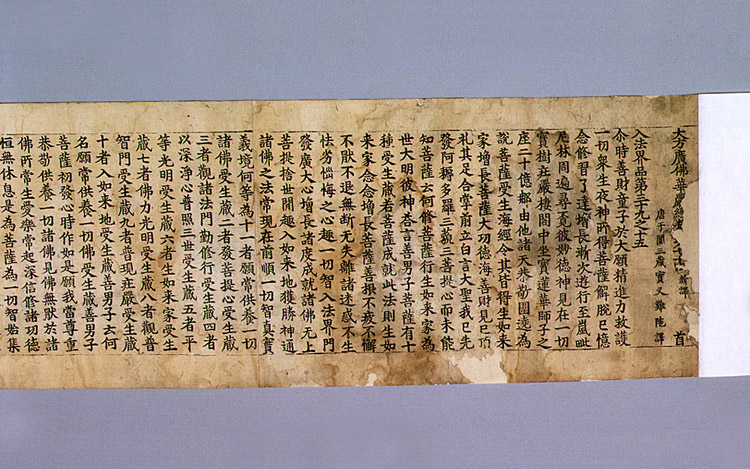 大方廣佛華嚴經 新譯 首
唐于闐三藏實叉難陀譯
入法界品第三十九之十五
尒時善財童子於大願精進力救護
一切衆生夜神所得菩薩解脫已憶
念修習了達增長漸次遊行至嵐毗
尼林周遍尋覓彼妙德神見在一切
寶樹莊嚴樓閣中坐寶蓮華師子之
座二十億那由他諸天恭敬圍遶為
說菩薩受生海經令其皆得生如來
家增長菩薩大功德海善財見已頂
礼其足合掌前立白言大聖我已先
發阿耨多羅三藐三菩提心而未能
知菩薩云何修菩薩行生如來家為
世大明彼神荅言善男子菩薩有十
種受生藏若菩薩成就此法則生如
來家念念增長菩薩善根不疲不懈
不猒不退無斷无失離諸迷惑不生
怯劣惱悔之心趣一切智入法界門
發廣大心增長諸度成就諸佛无上
菩提捨世閒趣入如來地獲勝神通
諸佛之法常現在前順一切智真實
義境何等為十一者願常供養一切
諸佛受生藏二者發菩提心受生藏
三者觀諸法門勤修行受生藏四者
以深淨心普照三世受生藏五者平
等光明受生藏六者生如來家受生
藏七者佛力光明受生藏八者觀普
智門受生藏九者普現莊嚴受生藏
十者入如來地受生藏善男子云何
名願常供養一切佛受生藏善男子
菩薩初發心時作如是願我當尊重
恭敬供養一切諸佛見佛無猒於諸
佛所常生愛樂常起深信修諸功德
恒無休息是為菩薩為一切智始集